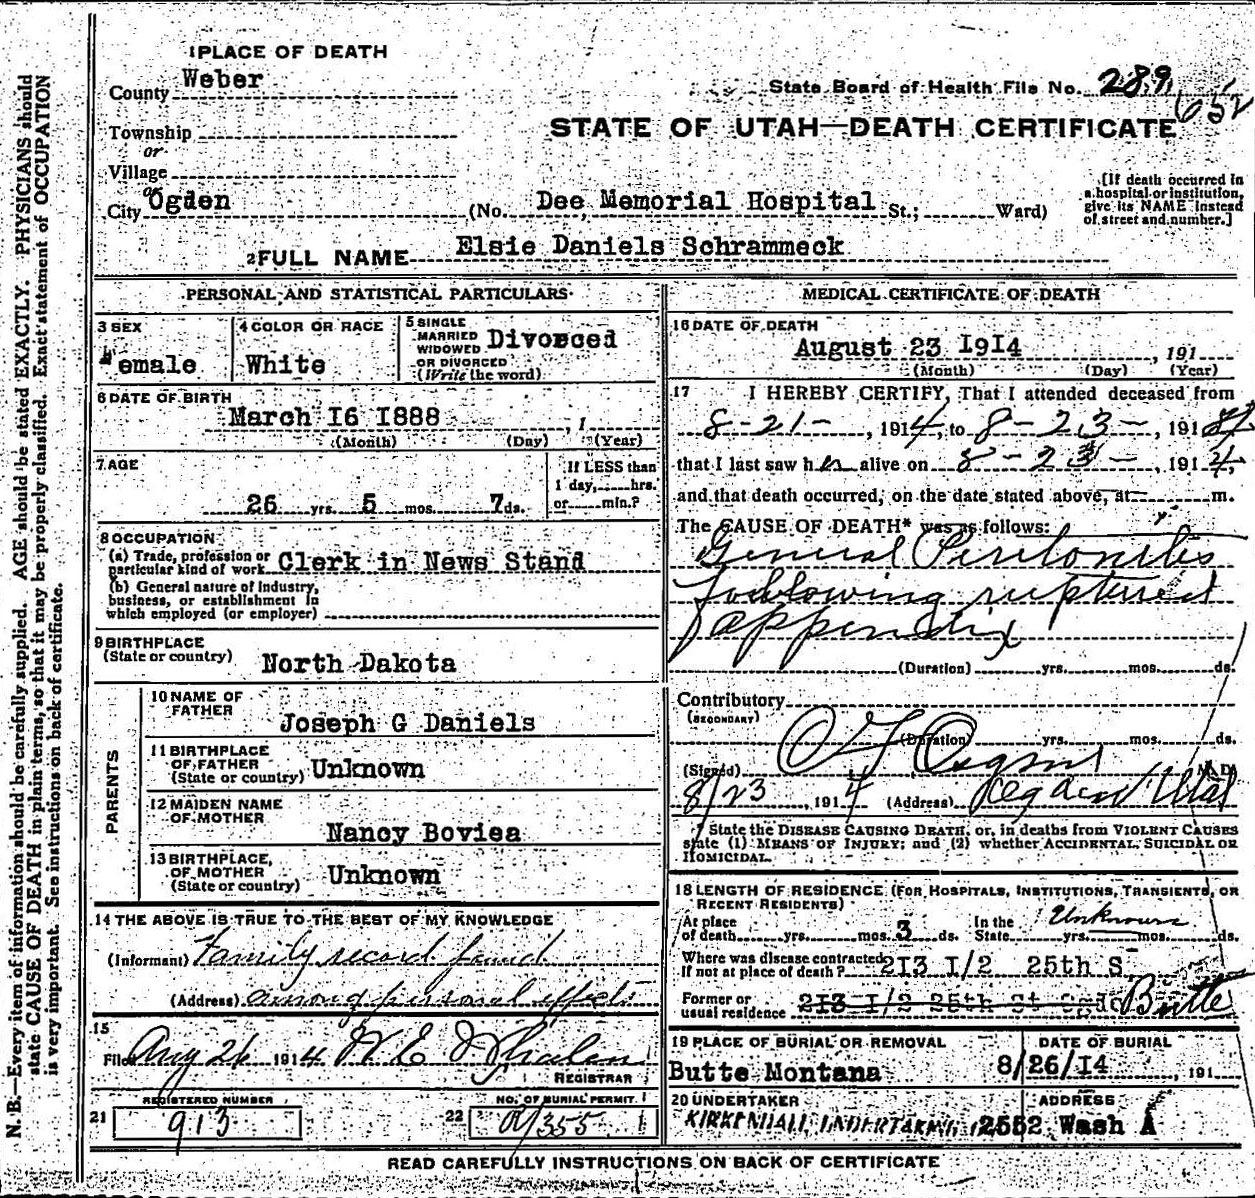 1 PLACE OF DEATH
County Weber
State Board of Health File No. 289
652
STATE OF UTAH—DEATH CERTIFICATE
Township
or
Village
or
City Ogden (No. Dee Memorial Hospital St.; Ward)
[If death occurred in
a hospital or institution,
give its NAME instead
of street and number.]
2 FULL NAME Elsie Daniels Schrammeck
PERSONAL AND STATISTICAL PARTICULARS
3 SEX
Female
4 COLOR OR RACE
White
5 SINGLE
MARRIED
WIDOWED
OR DIVORCED
(Write the word)
Divorced
6 DATE OF BIRTH
March 16 1888 , 1
(Month) (Day) (Year)
7 AGE
26 yrs. 5 mos. 7 ds.
If LESS than
1 day, hrs.
or min.?
8 OCCUPATION
(a) Trade, profession or
particular kind of work Clerk in News Stand
(b) General nature of industry,
business, or establishment in
which employed (or employer)
9 BIRTHPLACE
(State or country) North Dakota
PARENTS
10 NAME OF
FATHER
Joseph G Daniels
11 BIRTHPLACE
OF FATHER
(State or country) Unknown
12 MAIDEN NAME
OF MOTHER
Nancy Boviea
13 BIRTHPLACE,
OF MOTHER
(State or country) Unknown
14 THE ABOVE IS TRUE TO THE BEST OF MY KNOWLEDGE
(Informant) Family record found
(Address) among personal effects
15
Filed Aug 26 1914 W. E. Whalen
REGISTRAR
21 REGISTERED NUMBER
913
22 NO. OF BURIAL PERMIT
R/355
MEDICAL CERTIFICATE OF DEATH
16 DATE OF DEATH
August 23 1914 , 191
(Month) (Day) (Year)
17 I HEREBY CERTIFY, That I attended deceased from
8-21- , 1914, to 8-23- , 191
that I last saw her alive on 8-23- , 1914.
and that death occurred, on the date stated above, at m.
The CAUSE OF DEATH* was as follows:
General Peritonitis
following ruptured
appendix
(Duration) yrs. mos. ds.
Contributory
(SECONDARY)
(Duration) yrs. mos. ds.
(Signed) M.D.
8/23 , 1914 (Address) Ogden Utah
State the DISEASE CAUSING DEATH, or, in deaths from VIOLENT CAUSES
state (1) MEANS OF INJURY; and (2) whether ACCIDENTAL, SUICIDAL OR
HOMICIDAL.
18 LENGTH OF RESIDENCE (FOR HOSPITALS, INSTITUTIONS, TRANSIENTS, OR
RECENT RESIDENTS)
At place
of death yrs. mos. 3 ds.
In the
State Unknown yrs. mos. ds.
Where was disease contracted
If not at place of death? 213 1/2 25th S
Former or
usual residence 213 1/2 25th St Butte
19 PLACE OF BURIAL OR REMOVAL
Butte Montana
DATE OF BURIAL
8/26/14 , 191
20 UNDERTAKER
KIRKENDALL UNDERTAKING
ADDRESS
2552 Wash A
READ CAREFULLY INSTRUCTIONS ON BACK OF CERTIFICATE
N. B.—Every item of information should be carefully supplied. AGE should be stated EXACTLY. PHYSICIANS should
state CAUSE OF DEATH in plain terms, so that it may be properly classified. Exact statement of OCCUPATION
is very important. See instructions on back of certificate.